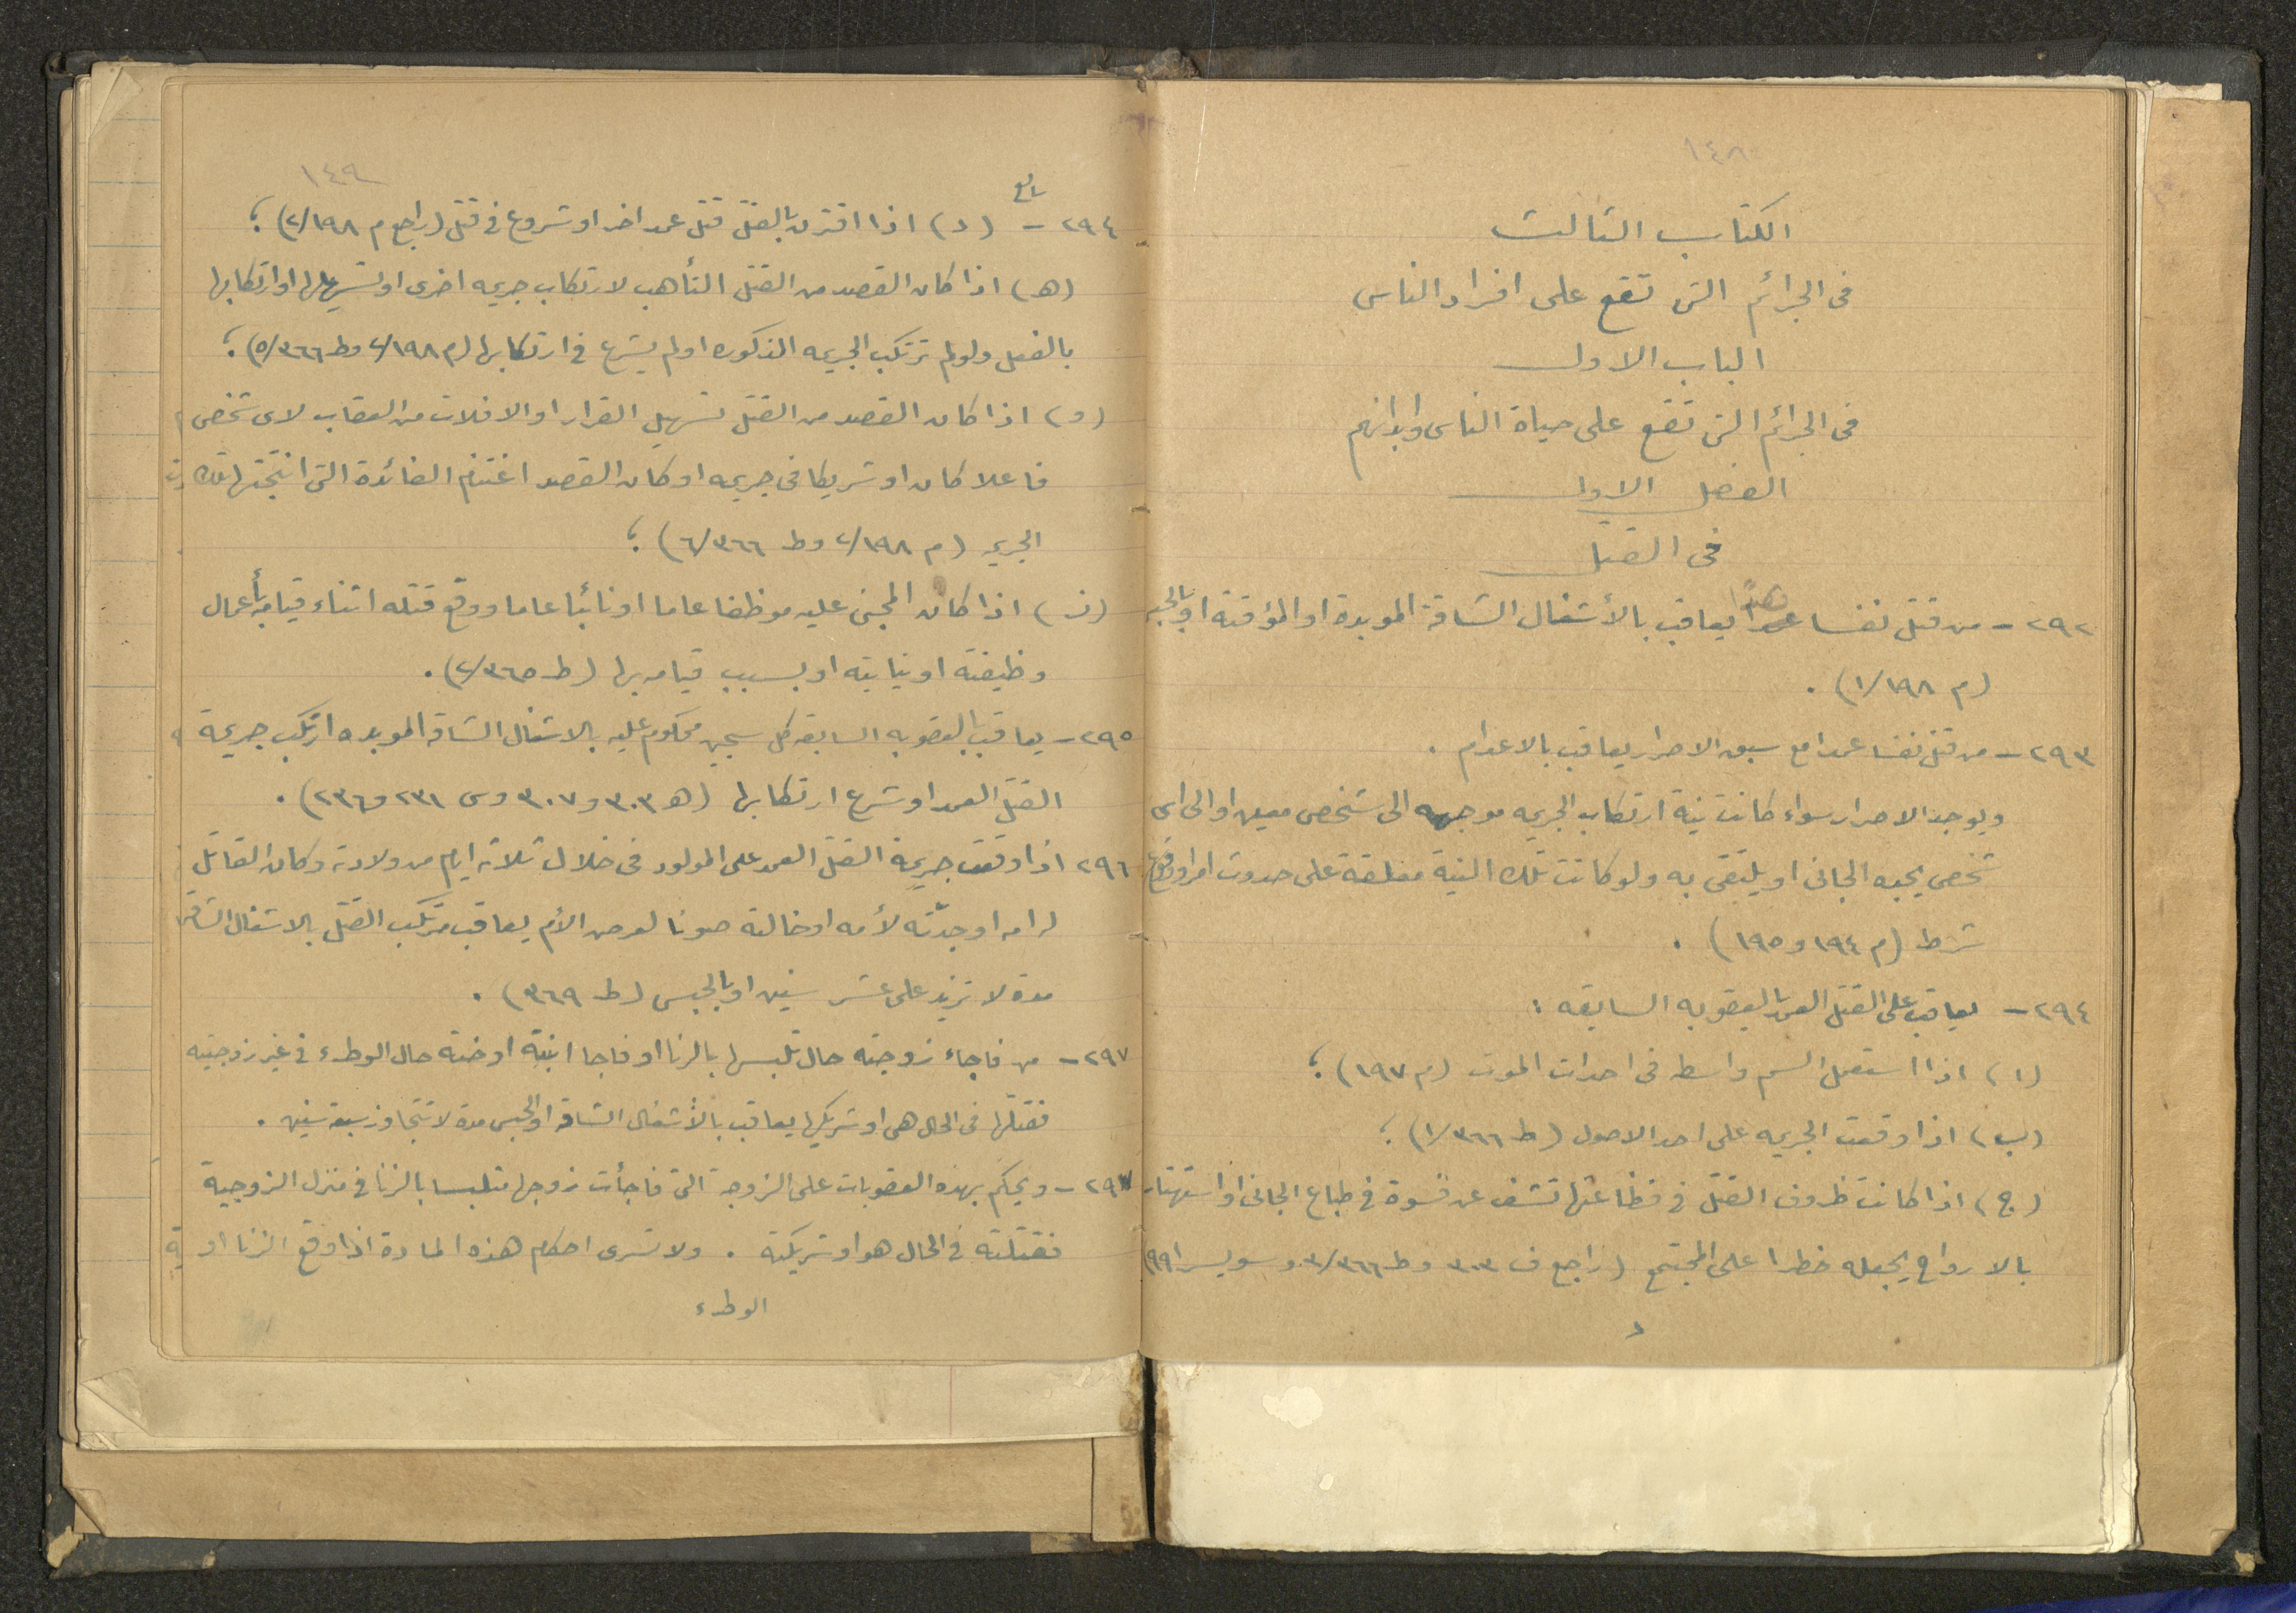 ١٤٨
الكتاب الثالث
فى الجرائم التى تقع على افراد الناس
الباب الاول
فى الجرائم التى تقع على حياة الناس وابدانهم
الفصل الاول
فى القتل
٢٩٢ - من قتل نفسا عمدا يعاقب بالأشغال الشاقة الموبدة او المؤقتة او بالحبس
(م ١٩٨/١) .
٢٩٣ - من قتل نفسا عمدا مع سبق الاصرار يعاقب بالاعدام .
ويوجد الاصرار سواء كانت نية ارتكاب الجريمه موجهه الى شخص معين او الى اى
شخص يجده الجانى او يلتقى به ولو كانت تلك النية معلقة على حدوث امر او وقوع
شرط (م ١٩٤ و ١٩٥) .
٢٩٤ - يعاقب على القتل العمد بالعقوبه السابقه :
(ا) اذا استعمل السم واسطه فى احداث الموت (م ١٩٧) ؛
(ب) اذا وقعت الجريمه على احد الاصول (ط ٣٦٦/١) ؛
(ج) اذا كانت ظروف القتل فى فظاعتها تشف عن قسوة فى طباع الجانى او استهتار
بالارواح يجعله خطرا على المجتمع (راجع ف ٣٠٣ وط ٣٦٦/٣ وسويسرا ٩٩)
د
١٤٩
٢٩٤ - تابع (د) اذا اقترن بالقتل قتل عمد اخر او شروع فى قتل (راجع م ١٩٨/٢) ؛
(هـ) اذا كان القصد من القتل التأهب لارتكاب جريمه اخرى او تسهيلها او ارتكابها
بالفعل ولو لم ترتكب الجريمه المذكوره او لم يشرع فى ارتكابها (م ١٩٨/٢ وط ٣٦٦/٥) ؛
(و) اذا كان القصد من القتل تسهيل الفرار او الافلات من العقاب لاى شخص
فاعلا كان او شريكا فى جريمه او كان القصد اغتنام الفائدة التى انتجتها تلك
الجريمه (م ١٩٨/٢ وط ٣٦٦/٦) ؛
(ز) اذا كان المجنى عليه موظفا عاما او نائبا عاما ووقع قتله اثناء قيامه بأعمال
وظيفته او نيابته او بسبب قيامه بها (ط ٣٦٥/٢) .
٢٩٥ - يعاقب بالعقوبه السابقه كل سجين محكوم عليه بالاشغال الشاقه الموبده ارتكب جريمة
القتل العمد او شرع ارتكابها (هـ ٣٠٣ و ٣٠٧ وس ٢٣١ و ٢٣٦) .
٢٩٦ اذا وقعت جريمة القتل العمد على المولود فى خلال ثلاثه ايام من ولادته وكان القاتل
له امه او جدّته لأمه او خالته صونا لعرض الأم يعاقب مرتكب القتل بالاشغال الشاقه
مدة لا تزيد على عشر سنين او بالحبس (ط ٣٦٩) .
٢٩٧ - من فاجاء زوجته حال تلبسها بالزنا او فاجا ابنته او اخته حال الوطء فى غير زوجيته
فقتلها فى الحال هى او شريكها يعاقب بالأشغال الشاقه او الحبس مدة لا تتجاوز سبعة سنين .
٢٩٧ - ويحكم بهذه العقوبات على الزوجة التى فاجأت زوجها متلبسا بالزنا فى منزل الزوجية
فقتلته فى الحال هو او شريكته . ولا تسرى احكام هذه المادة اذا وقع الزنا او
الوطء